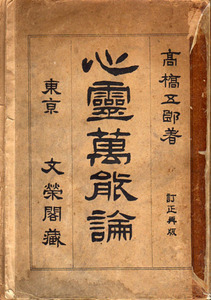 高橋五郎著
訂正再版
心靈萬能論
東京
文榮閣藏